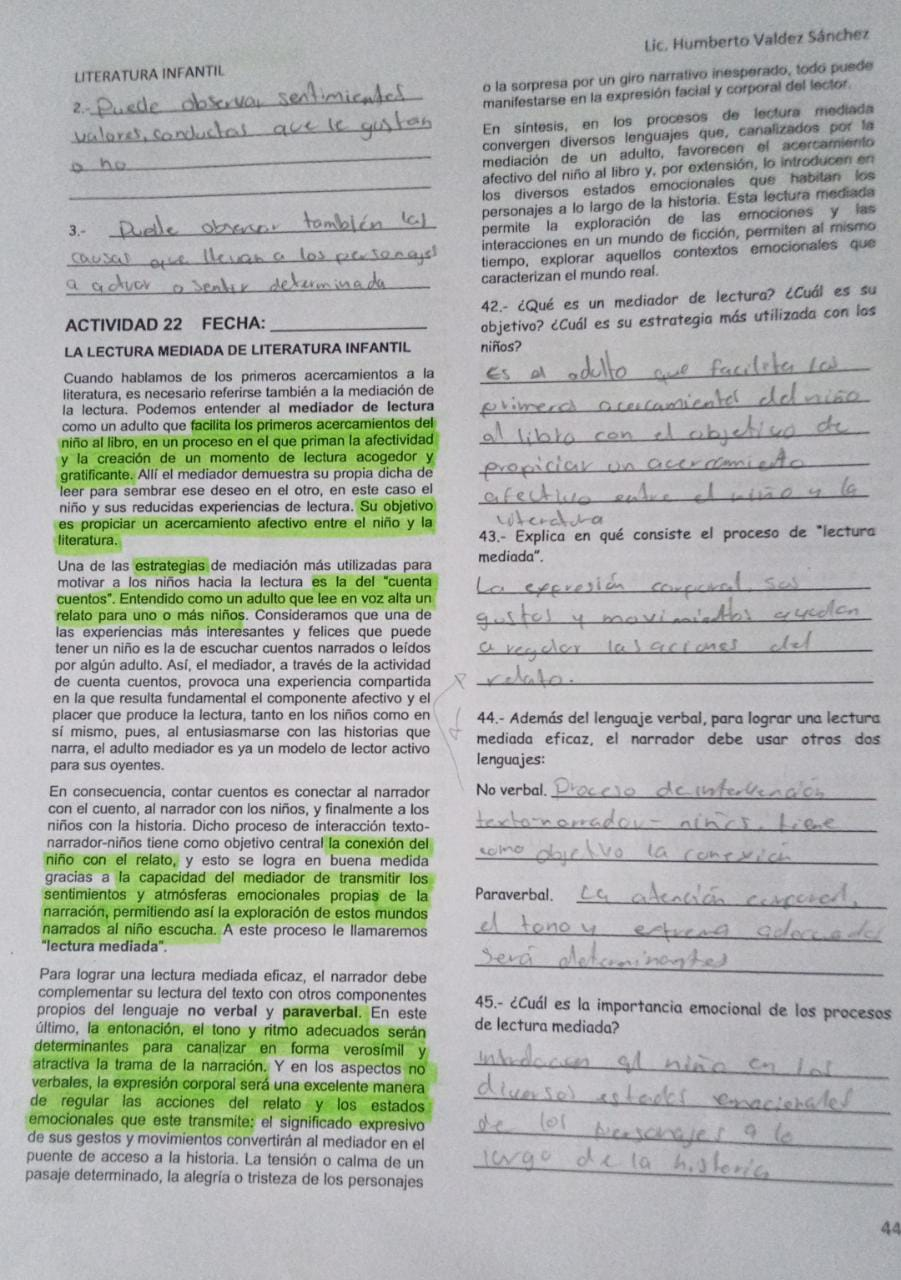 LITERATURA INFANTIL
2.- Puede observar sentimientos
valores, conductas que le gustan
o no
3.- Puede observar también las
causas que llevan a los personajes
a actuar o sentir determinada
ACTIVIDAD 22 FECHA: ____________
LA LECTURA MEDIADA DE LITERATURA INFANTIL
Cuando hablamos de los primeros acercamientos a la
literatura, es necesario referirse también a la mediación de
la lectura. Podemos entender al mediador de lectura
como un adulto que facilita los primeros acercamientos del
niño al libro, en un proceso en el que priman la afectividad
y la creación de un momento de lectura acogedor y
gratificante. Allí el mediador demuestra su propia dicha de
leer para sembrar ese deseo en el otro, en este caso el
niño y sus reducidas experiencias de lectura. Su objetivo
es propiciar un acercamiento afectivo entre el niño y la
literatura.
Una de las estrategias de mediación más utilizadas para
motivar a los niños hacia la lectura es la del "cuenta
cuentos". Entendido como un adulto que lee en voz alta un
relato para uno o más niños. Consideramos que una de
las experiencias más interesantes y felices que puede
tener un niño es la de escuchar cuentos narrados o leídos
por algún adulto. Así, el mediador, a través de la actividad
de cuenta cuentos, provoca una experiencia compartida
en la que resulta fundamental el componente afectivo y el
placer que produce la lectura, tanto en los niños como en
sí mismo, pues, al entusiasmarse con las historias que
narra, el adulto mediador es ya un modelo de lector activo
para sus oyentes.
En consecuencia, contar cuentos es conectar al narrador
con el cuento, al narrador con los niños, y finalmente a los
niños con la historia. Dicho proceso de interacción texto-
narrador-niños tiene como objetivo central la conexión del
niño con el relato, y esto se logra en buena medida
gracias a la capacidad del mediador de transmitir los
sentimientos y atmósferas emocionales propias de la
narración, permitiendo así la exploración de estos mundos
narrados al niño escucha. A este proceso le llamaremos
"lectura mediada".
Para lograr una lectura mediada eficaz, el narrador debe
complementar su lectura del texto con otros componentes
propios del lenguaje no verbal y paraverbal. En este
último, la entonación, el tono y ritmo adecuados serán
determinantes para canalizar en forma verosímil y
atractiva la trama de la narración. Y en los aspectos no
verbales, la expresión corporal será una excelente manera
de regular las acciones del relato y los estados
emocionales que este transmite: el significado expresivo
de sus gestos y movimientos convertirán al mediador en el
puente de acceso a la historia. La tensión o calma de un
pasaje determinado, la alegría o tristeza de los personajes
Lic. Humberto Valdez Sánchez
o la sorpresa por un giro narrativo inesperado, todo puede
manifestarse en la expresión facial y corporal del lector.
En síntesis, en los procesos de lectura mediada
convergen diversos lenguajes que, canalizados por la
mediación de un adulto, favorecen el acercamiento
afectivo del niño al libro y, por extensión, lo introducen en
los diversos estados emocionales que habitan los
personajes a lo largo de la historia. Esta lectura mediada
permite la exploración de las emociones y las
interacciones en un mundo de ficción, permiten al mismo
tiempo, explorar aquellos contextos emocionales que
caracterizan el mundo real.
42.- ¿Qué es un mediador de lectura? ¿Cuál es su
objetivo? ¿Cuál es su estrategia más utilizada con los
niños?
Es el adulto que facilita los
primeros acercamientos del niño
al libro con el objetivo de
propiciar un acercamiento
afectivo entre el niño y la
literatura
43.- Explica en qué consiste el proceso de "lectura
mediada".
La expresión corporal, sus
gustos y movimientos ayudan
a regular las acciones del
relato.
44.- Además del lenguaje verbal, para lograr una lectura
mediada eficaz, el narrador debe usar otros dos
lenguajes:
No verbal. Proceso de intervención
texto-narrador-niños, tiene
como objetivo la conexión
Paraverbal. La atención corporal,
el tono y adecuado
será determinantes
45.- ¿Cuál es la importancia emocional de los procesos
de lectura mediada?
Introducen al niño en los
diversos estados emocionales
de los personajes a lo
largo de la historia
44